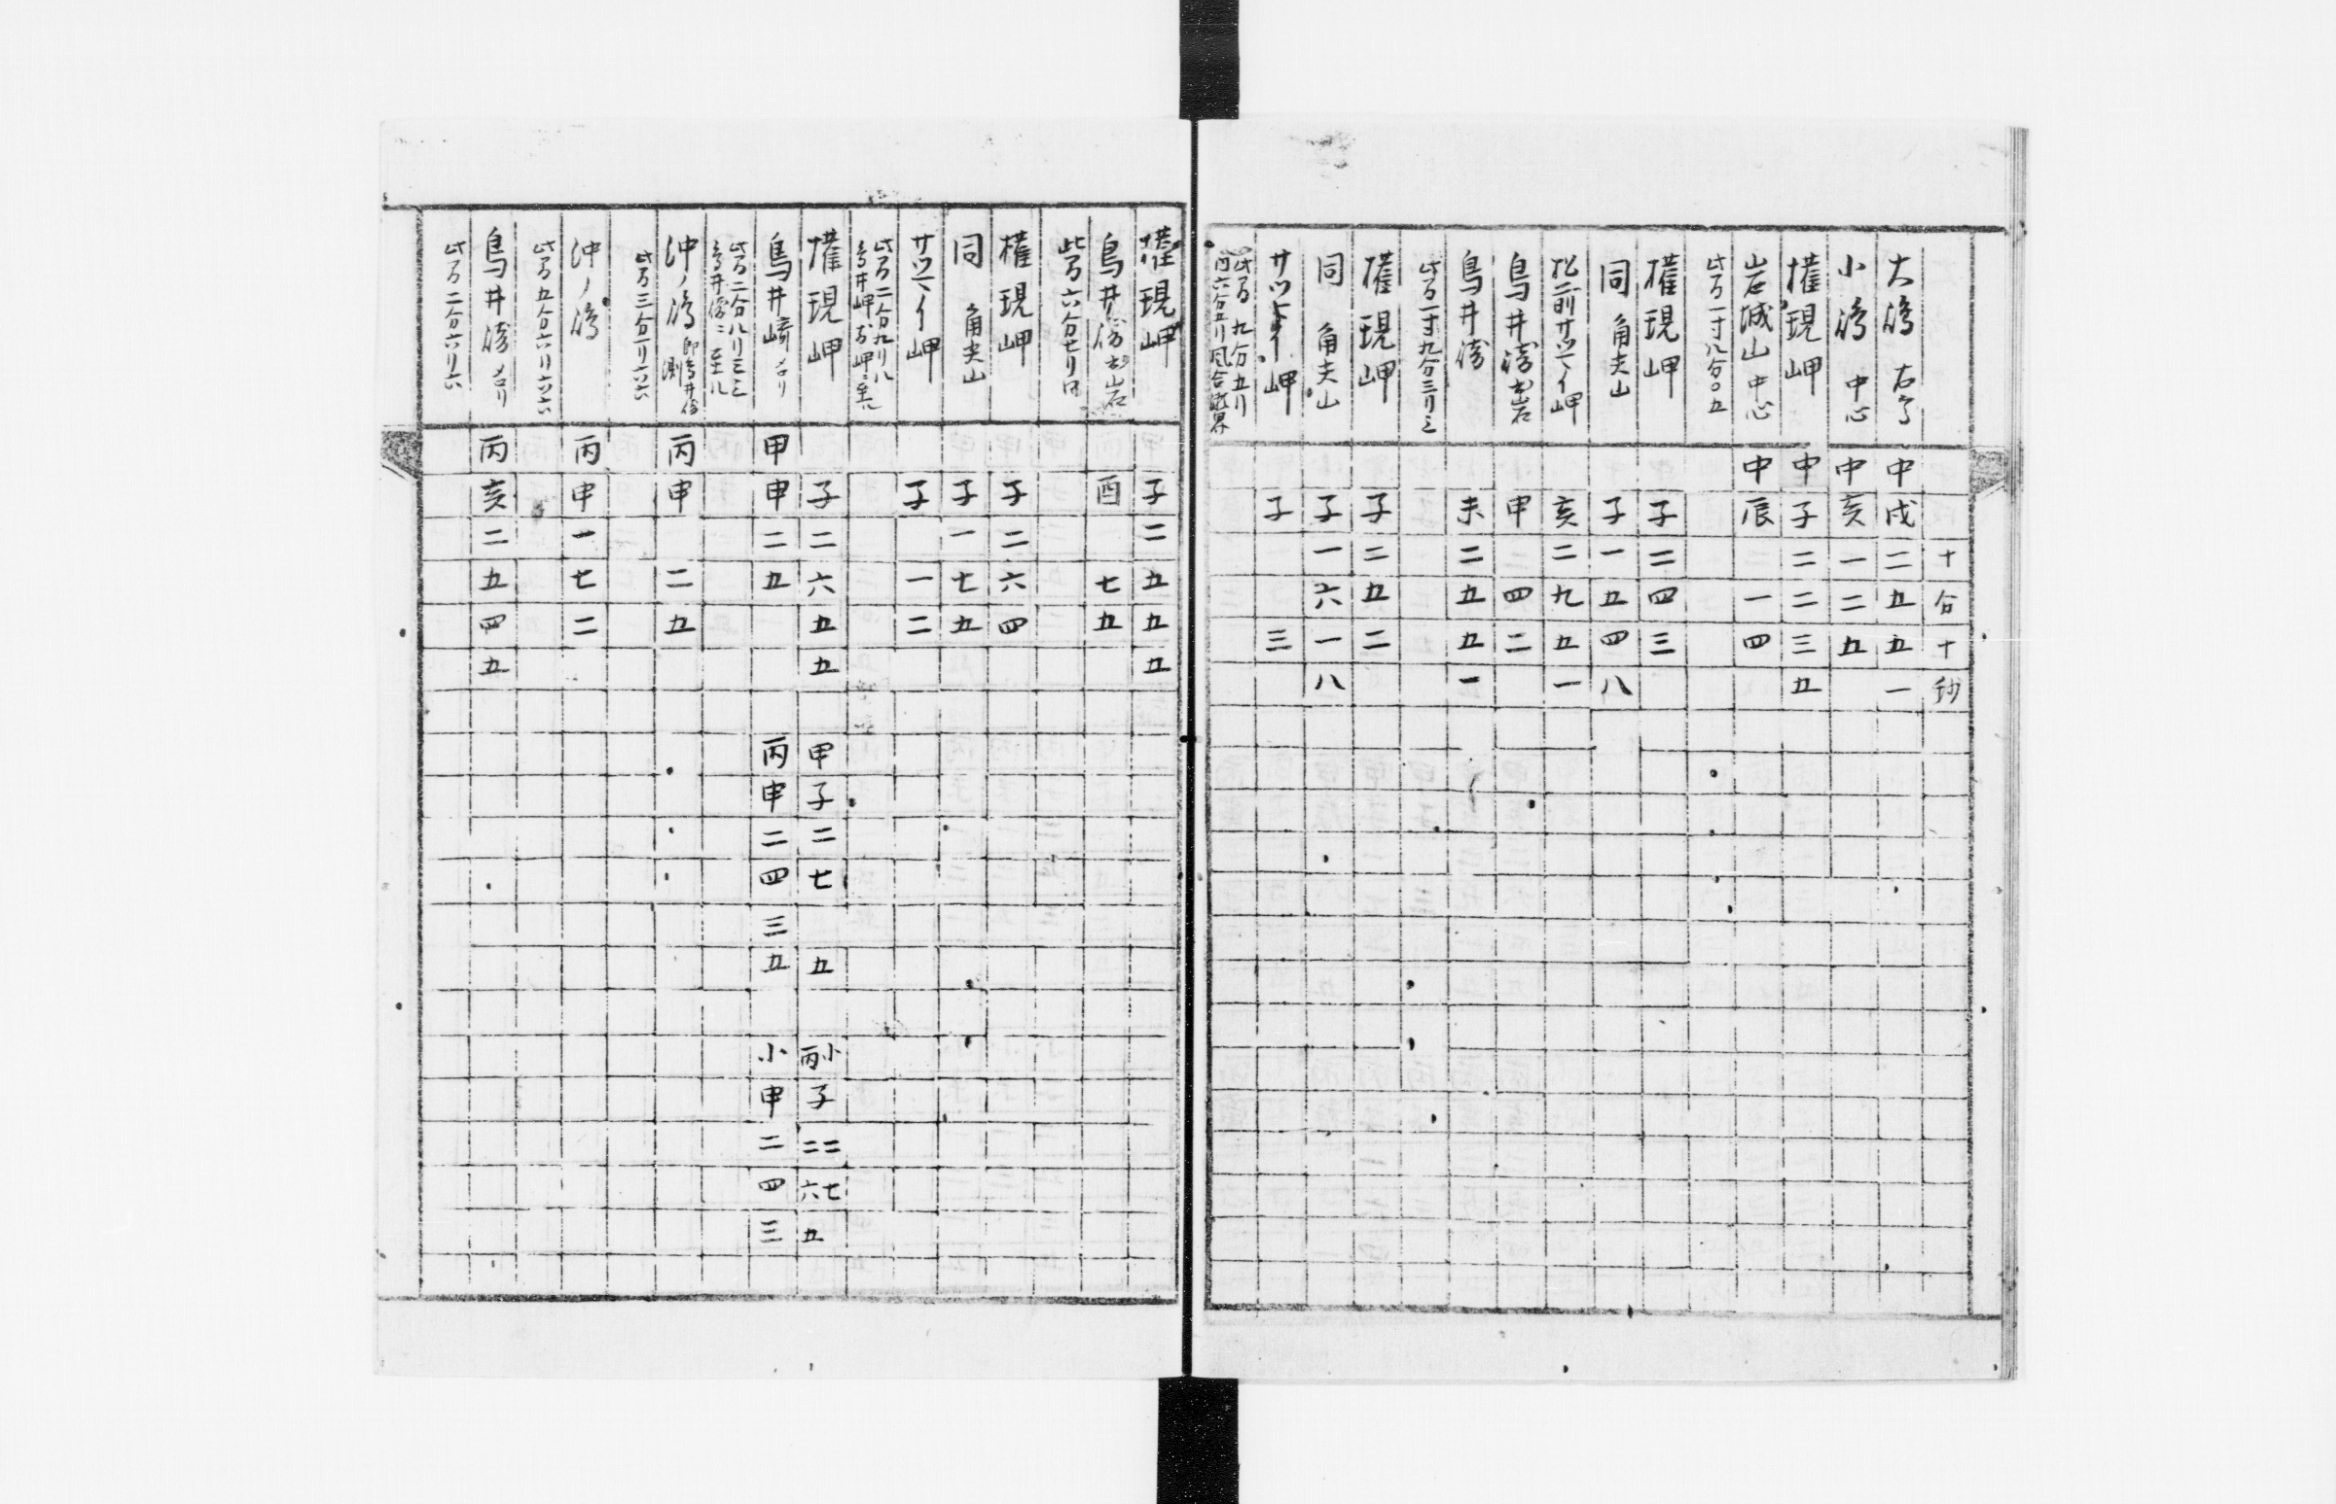 十 分 十 秒
大嶋 右丁 中 戌 二 五 五 一
小嶋 中心 中 亥 一 二 五
権現岬 中 子 二 二 三 五
岩城山 中心 中 辰 一 四
此方一寸八分〇五
権現岬 子 二 四 三
同 角夫山 子 一 五 四 八
松前 岬 亥 二 九 五 一
鳥井 岩 申 四 二
鳥井 未 二 五 五 一
此方一寸九分三リ三
権現岬 子 二 五 二
同 角夫山 子 一 六 一 八
岬 子 三
此方 九分五リ
同六分五リ風合
権現岬 子 二 五 五 五
鳥井 岩 酉 七 五
此方六分七リ
権現岬 子 二 六 四
同 角夫山 子 一 七 五
岬 子 一 二
此方二分九リ八
鳥井岬
権現岬 子 二 六 五 五 甲 子 二 七 五 小 丙 子 二 二 七 六 五
鳥井崎ヨリ 甲 申 二 五 丙 申 二 四 三 五 小 申 二 四 三
此方二分八リ三三
鳥井 ニ至ル
沖ノ嶋 即鳥井 測 丙 申 二 五
此方三分一リ六六
沖ノ嶋 丙 申 一 七 二
此方五分六リ六六
鳥井 ヨリ 丙 亥 二 五 四 五
此方二分六リ六